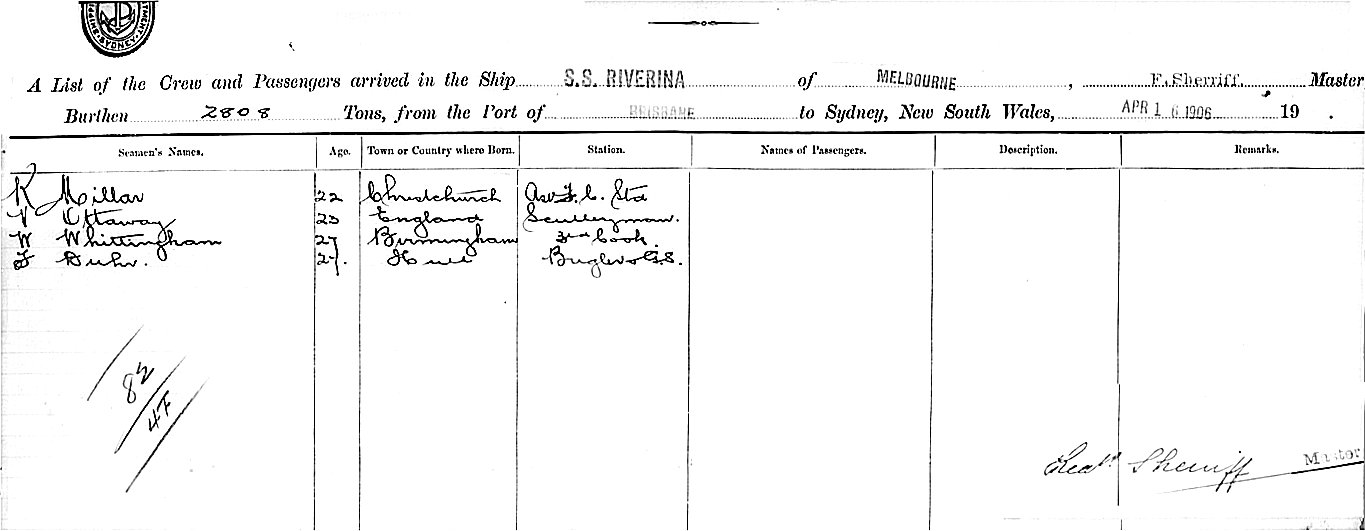 SYDNEY
A List of the Crew and Passengers arrived in the Ship S.S. RIVERINA of MELBOURNE, F. Sherriff. Master
Burthen 2808 Tons, from the Port of BRISBANE to Sydney, New South Wales, APR 16 1906 19 .
Seamen's Names. Age. Town or Country where Born. Station. Names of Passengers. Description. Remarks.
R Millar 22 Christchurch Asst F. C. Std
V Ottaway 23 England Sculleryman.
W Whittingham 27 Birmingham 3rd Cook.
F Duhr. 27. Hull Bugler & G.S.
82
47
Sherriff Master